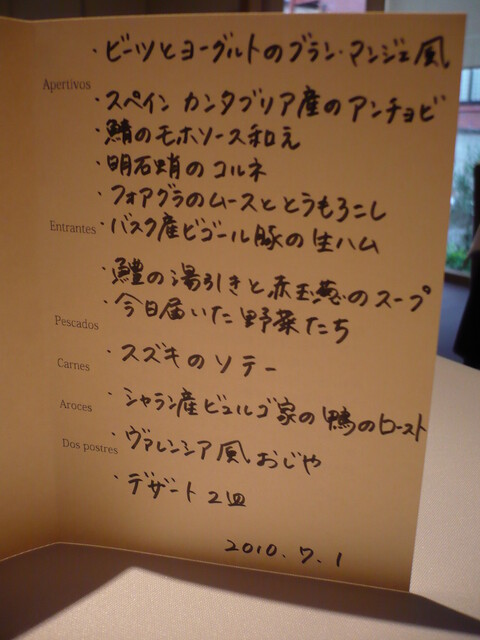 ・ビーツとヨーグルトのブラン・マンジェ風
Apertivos
・スペイン カンタブリア産のアンチョビ
・鯖のモホソース和え
・明石蛸のコルネ
・フォアグラのムースととうもろこし
Entrantes
・バスク産ビゴール豚の生ハム
・鱧の湯引きと赤玉葱のスープ
・今日届いた野菜たち
Pescados
・スズキのソテー
Carnes
・シャラン産ビュルゴ家の鴨のロースト
Aroces
・ヴァレンシア風おじや
Dos postres
・デザート2皿
2010.7.1